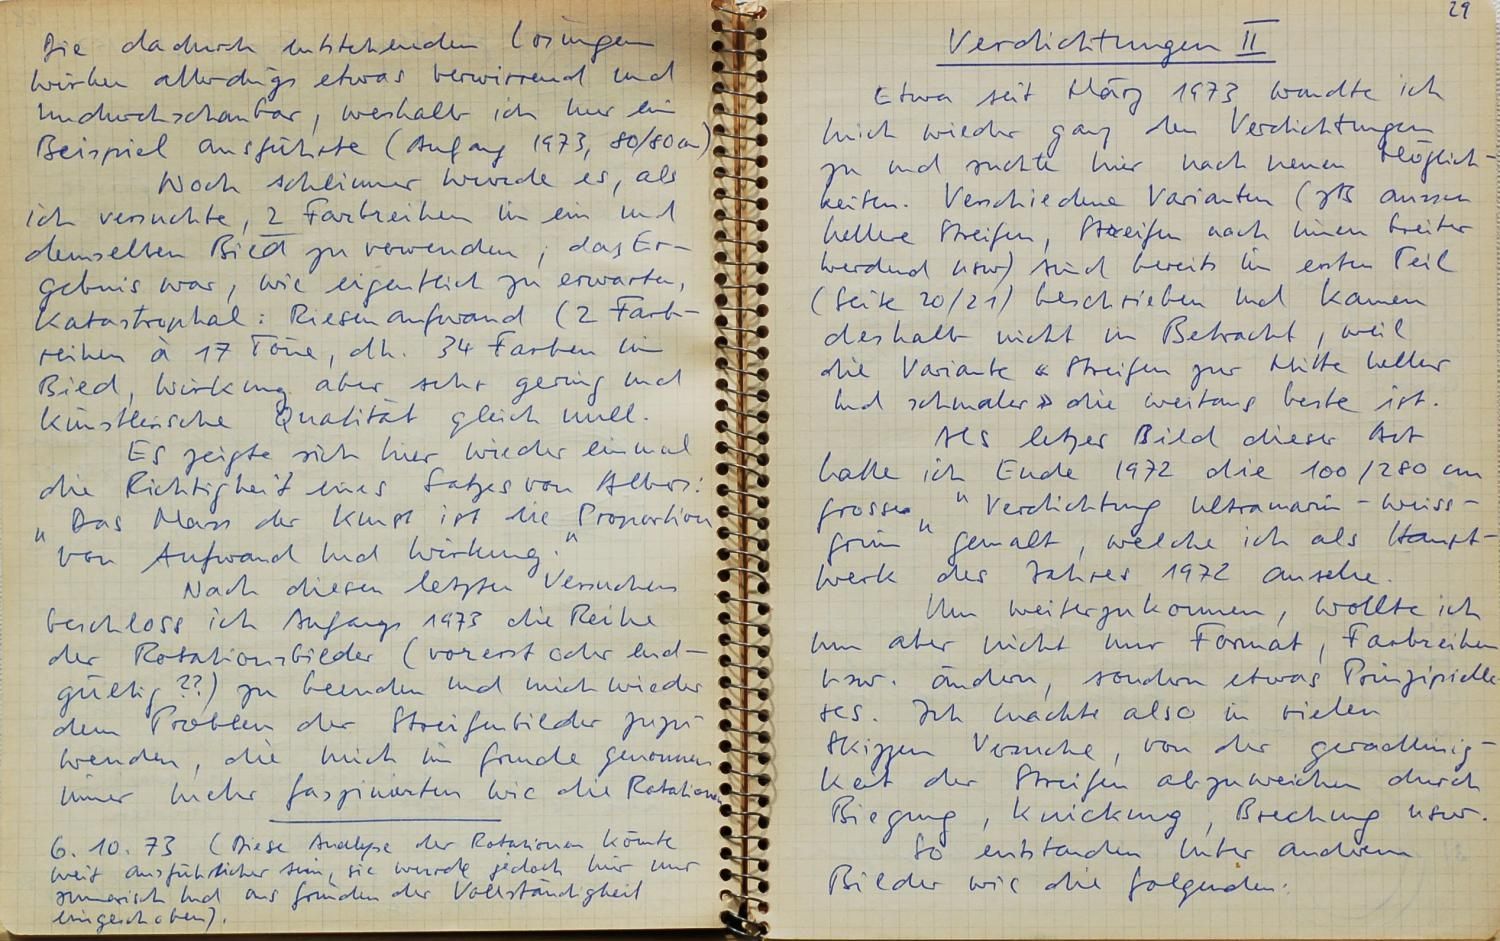 Die dadurch entstehenden Lösungen
wirken allerdings etwas verwirrend und
undurchschaubar, weshalb ich nur ein
Beispiel ausführte (Anfang 1973, 80/80cm)
Noch schlimmer wurde es, als
ich versuchte, 2 Farbreihen in ein und
demselben Bild zu verwenden; das Er-
gebnis war, wie eigentlich zu erwarten,
katastrophal: Riesenaufwand (2 Farb-
reihen à 17 Töne, dh. 34 Farben im
Bild, Wirkung aber sehr gering und
künstlerische Qualität gleich null.
Es zeigte sich hier wieder einmal
die Richtigkeit eines Satzes von Albers:
"Das Mass der Kunst ist die Proportion
von Aufwand und Wirkung."
Nach diesen letzten Versuchen
beschloss ich Anfangs 1973 die Reihe
der Rotationsbilder (vorerst oder end-
gültig??) zu beenden und mich wieder
dem Problem der Streifenbilder zuzu-
wenden, die mich im Grunde genommen
immer mehr faszinierten wie die Rotationen
6. 10. 73 (Diese Analyse der Rotationen könnte
weit ausführlicher sein, sie wurde jedoch hier nur
summarisch und aus Gründen der Vollständigkeit
eingeschoben).
29
Verdichtungen II
Etwa seit März 1973 wandte ich
mich wieder ganz den Verdichtungen
zu und suchte hier nach neuen Möglich-
keiten. Verschiedene Varianten (zB aussen
hellere Streifen, Streifen nach innen breiter
werdend usw) sind bereits im ersten Teil
(Seite 20/21) beschrieben und kamen
deshalb nicht in Betracht, weil
die Variante « Streifen zur Mitte heller
und schmaler» die weitaus beste ist.
Als letzes Bild dieser Art
hatte ich Ende 1972 die 100/280 cm
grosse "Verdichtung ultramarin-weiss-
grün" gemalt, welche ich als Haupt-
werk des Jahres 1972 ansehe.
Um weiterzukommen, wollte ich
nun aber nicht nur Format, Farbreihen
usw. ändern, sondern etwas Prinzipielle-
res. Ich machte also in vielen
Skizzen Versuche, von der geradlinig-
keit der Streifen abzuweichen durch
Biegung, Knickung, Brechung usw.
So entstanden unter anderem
Bilder wie die folgenden: